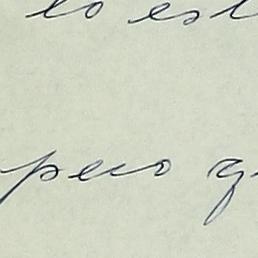 lo est
pero q